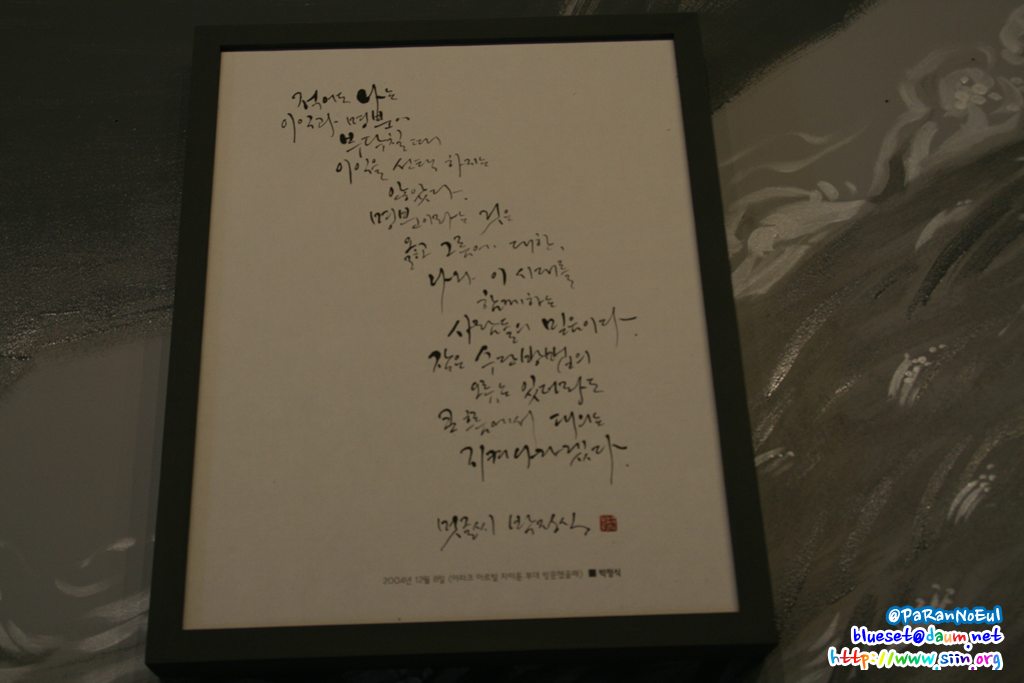 적어도 나는
이익과 명분이
부닥칠 때
이익을 선택 하지는
않았다.
명분이라는 것은
옳고 그름에 대한,
나와 이 시대를
함께하는
사람들의 믿음이다.
작은 수단방법의
오류는 있더라도
큰 흐름에서 대의는
지켜나가겠다.
멋글씨 박정식
2004년 12월 8일 (이라크 아르빌 자이툰 부대 방문연설에) ■ 박정식
@PaRanNoEul
blueset@daum.net
http://www.siin.org